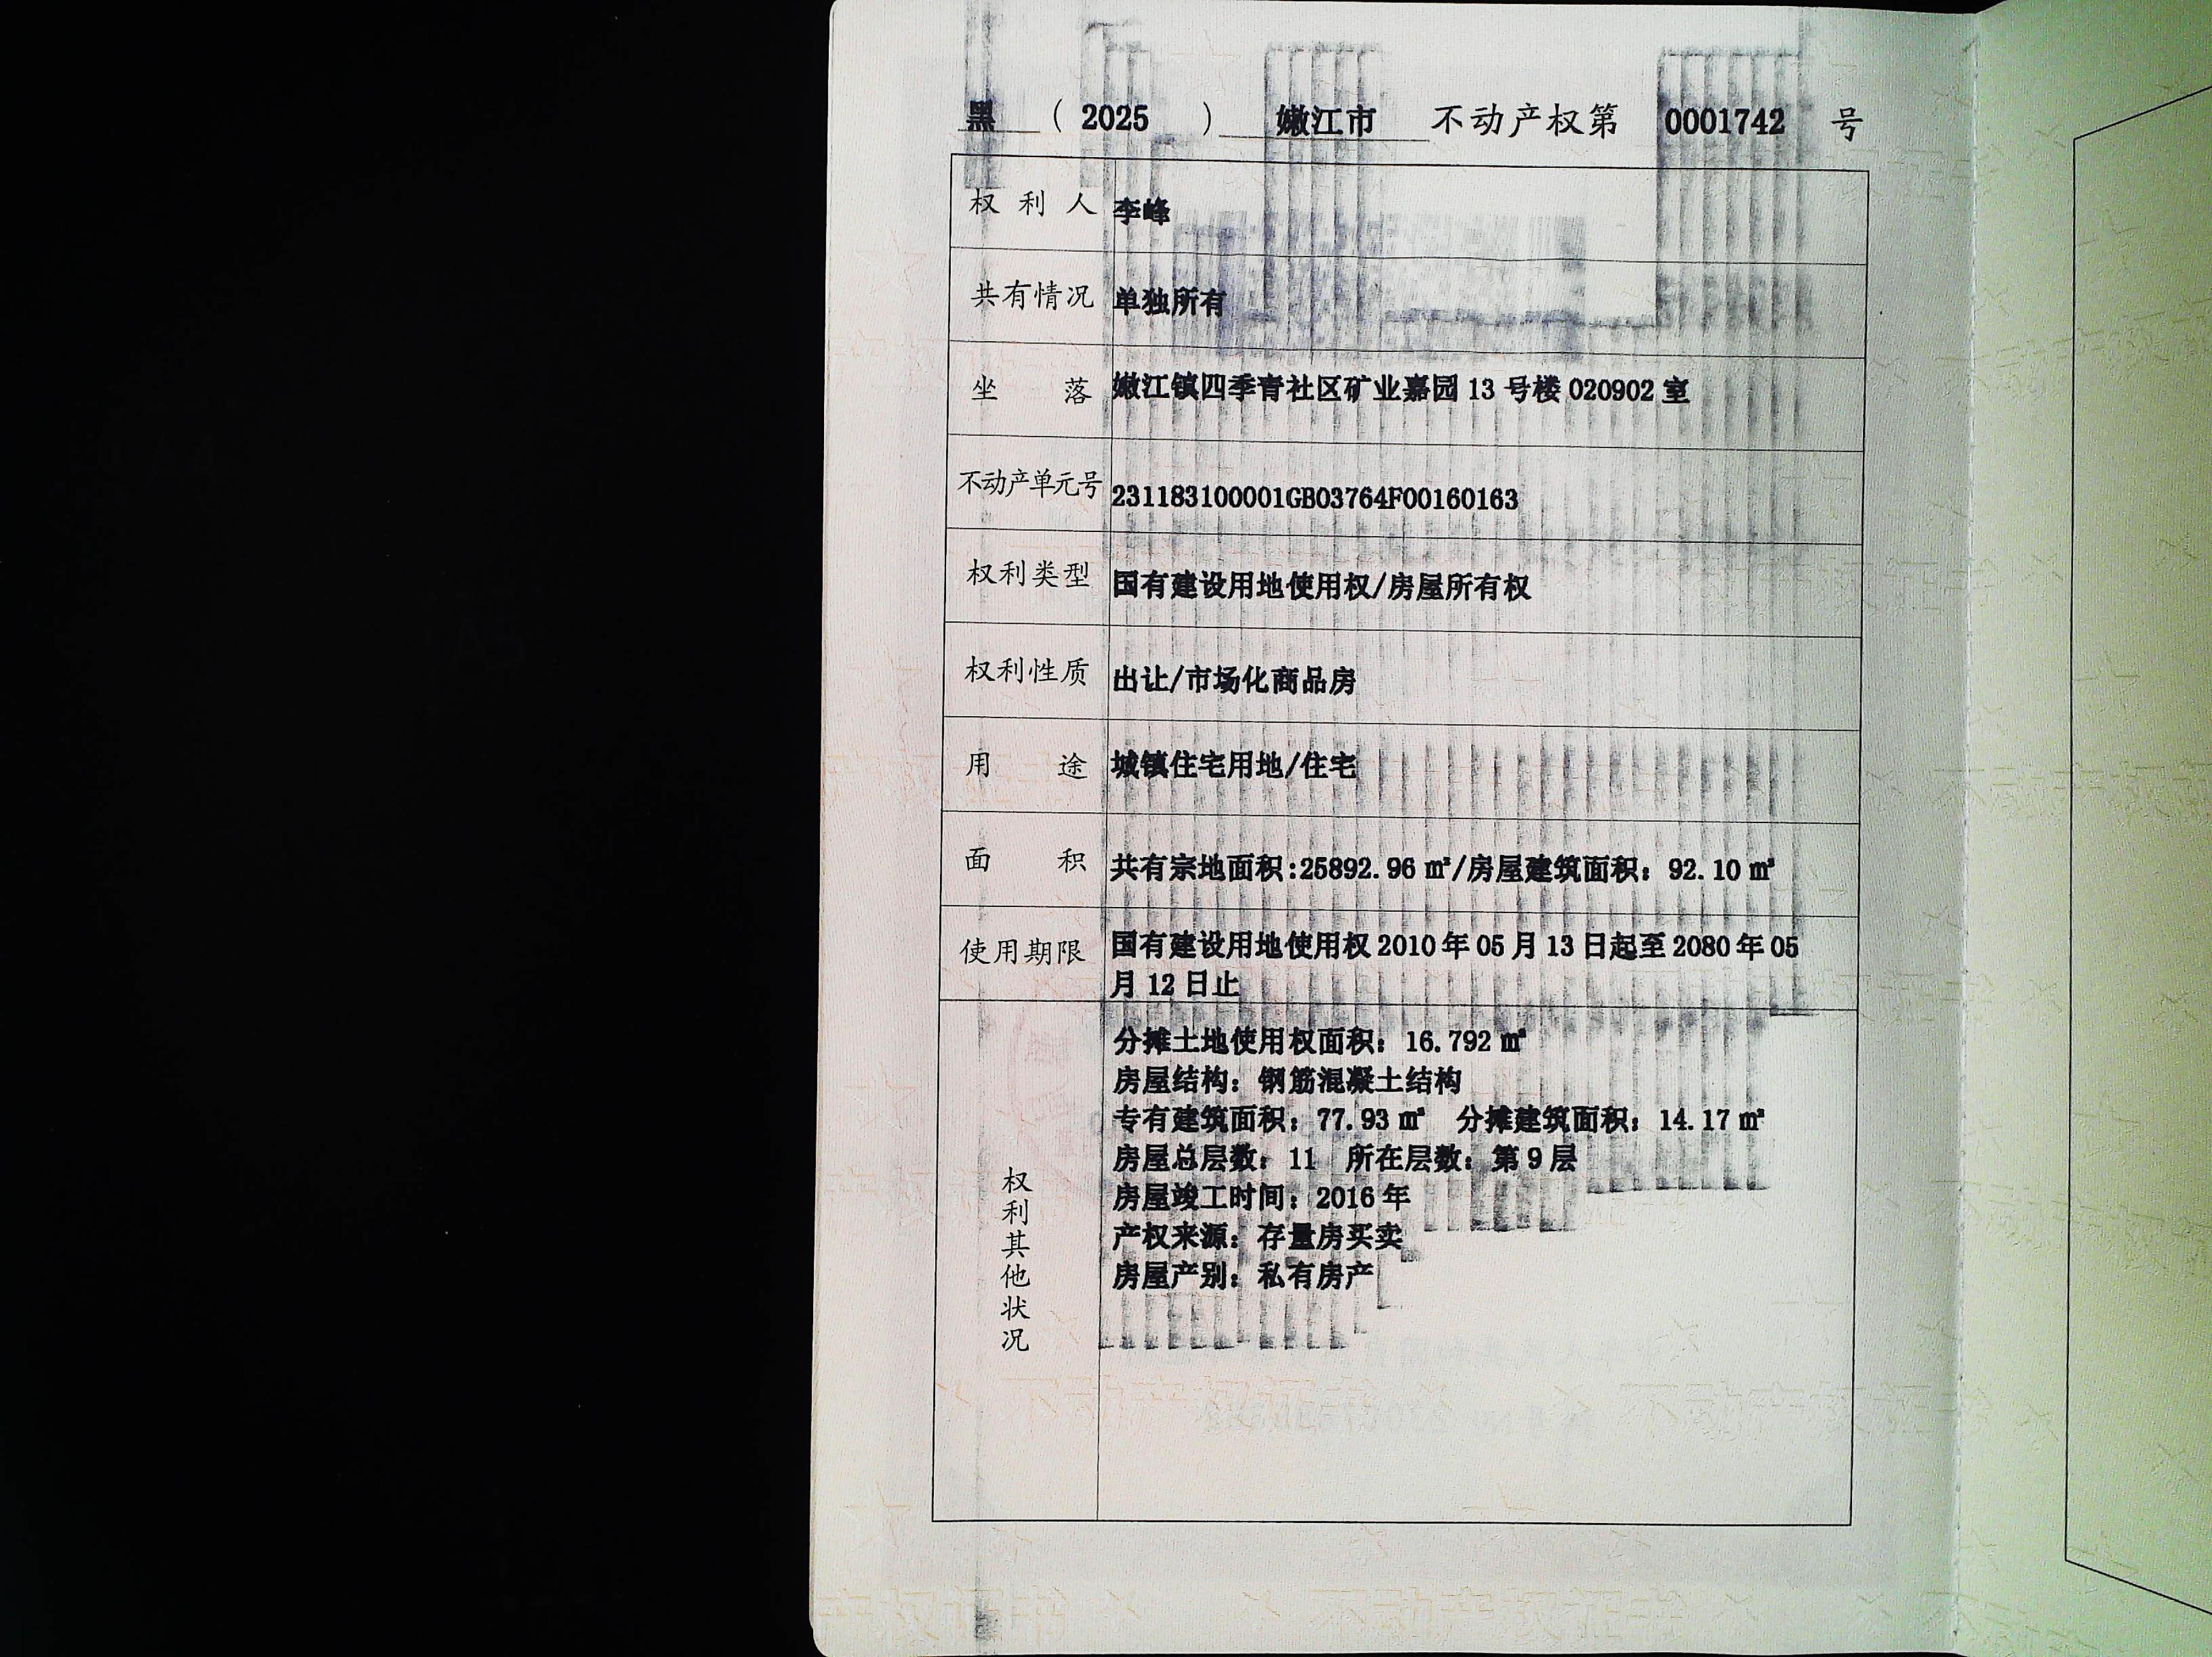 黑 （ 2025 ） 嫩江市 不动产权第 0001742 号
权利人 李峰
共有情况 单独所有
坐落 嫩江镇四季青社区矿业嘉园 13 号楼 020902 室
不动产单元号 231183100001GB03764F00160163
权利类型 国有建设用地使用权/房屋所有权
权利性质 出让/市场化商品房
用途 城镇住宅用地/住宅
面积 共有宗地面积:25892.96 ㎡/房屋建筑面积：92.10 ㎡
使用期限 国有建设用地使用权 2010 年 05 月 13 日起至 2080 年 05
月 12 日止
权利其他状况
分摊土地使用权面积：16.792 ㎡
房屋结构：钢筋混凝土结构
专有建筑面积：77.93 ㎡ 分摊建筑面积：14.17 ㎡
房屋总层数：11 所在层数：第 9 层
房屋竣工时间：2016 年
产权来源：存量房买卖
房屋产别：私有房产